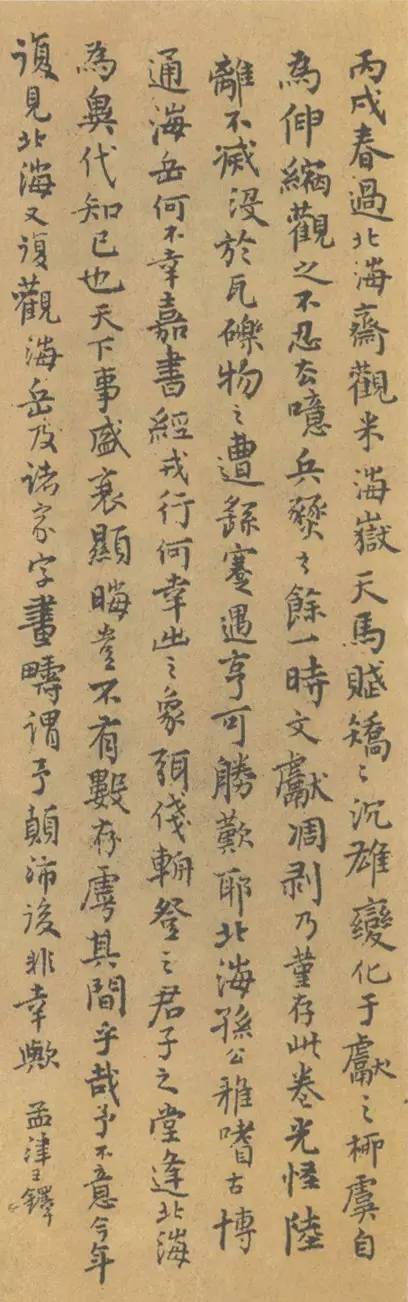 丙戌春過北海齋觀米海嶽天馬賦矯〻沉雄變化于獻之柳虞自
為伸縮觀之不忍去噫兵燹之餘一時文獻凋剥乃菫存此卷光怪陸
離不滅沒於瓦礫物之遭繇蹇遇亨可勝歎耶北海孫公雅嗜古博
通海岳何不幸嘉書經戎行何幸出之象弭俴輈登之君子之堂逢北海
為異代知己也天下事盛衰顯晦豈不有數存虖其間乎哉予不意今年
復見北海又復觀海岳及諸家字畫疇謂予顛沛後非幸歟 孟津王鐸